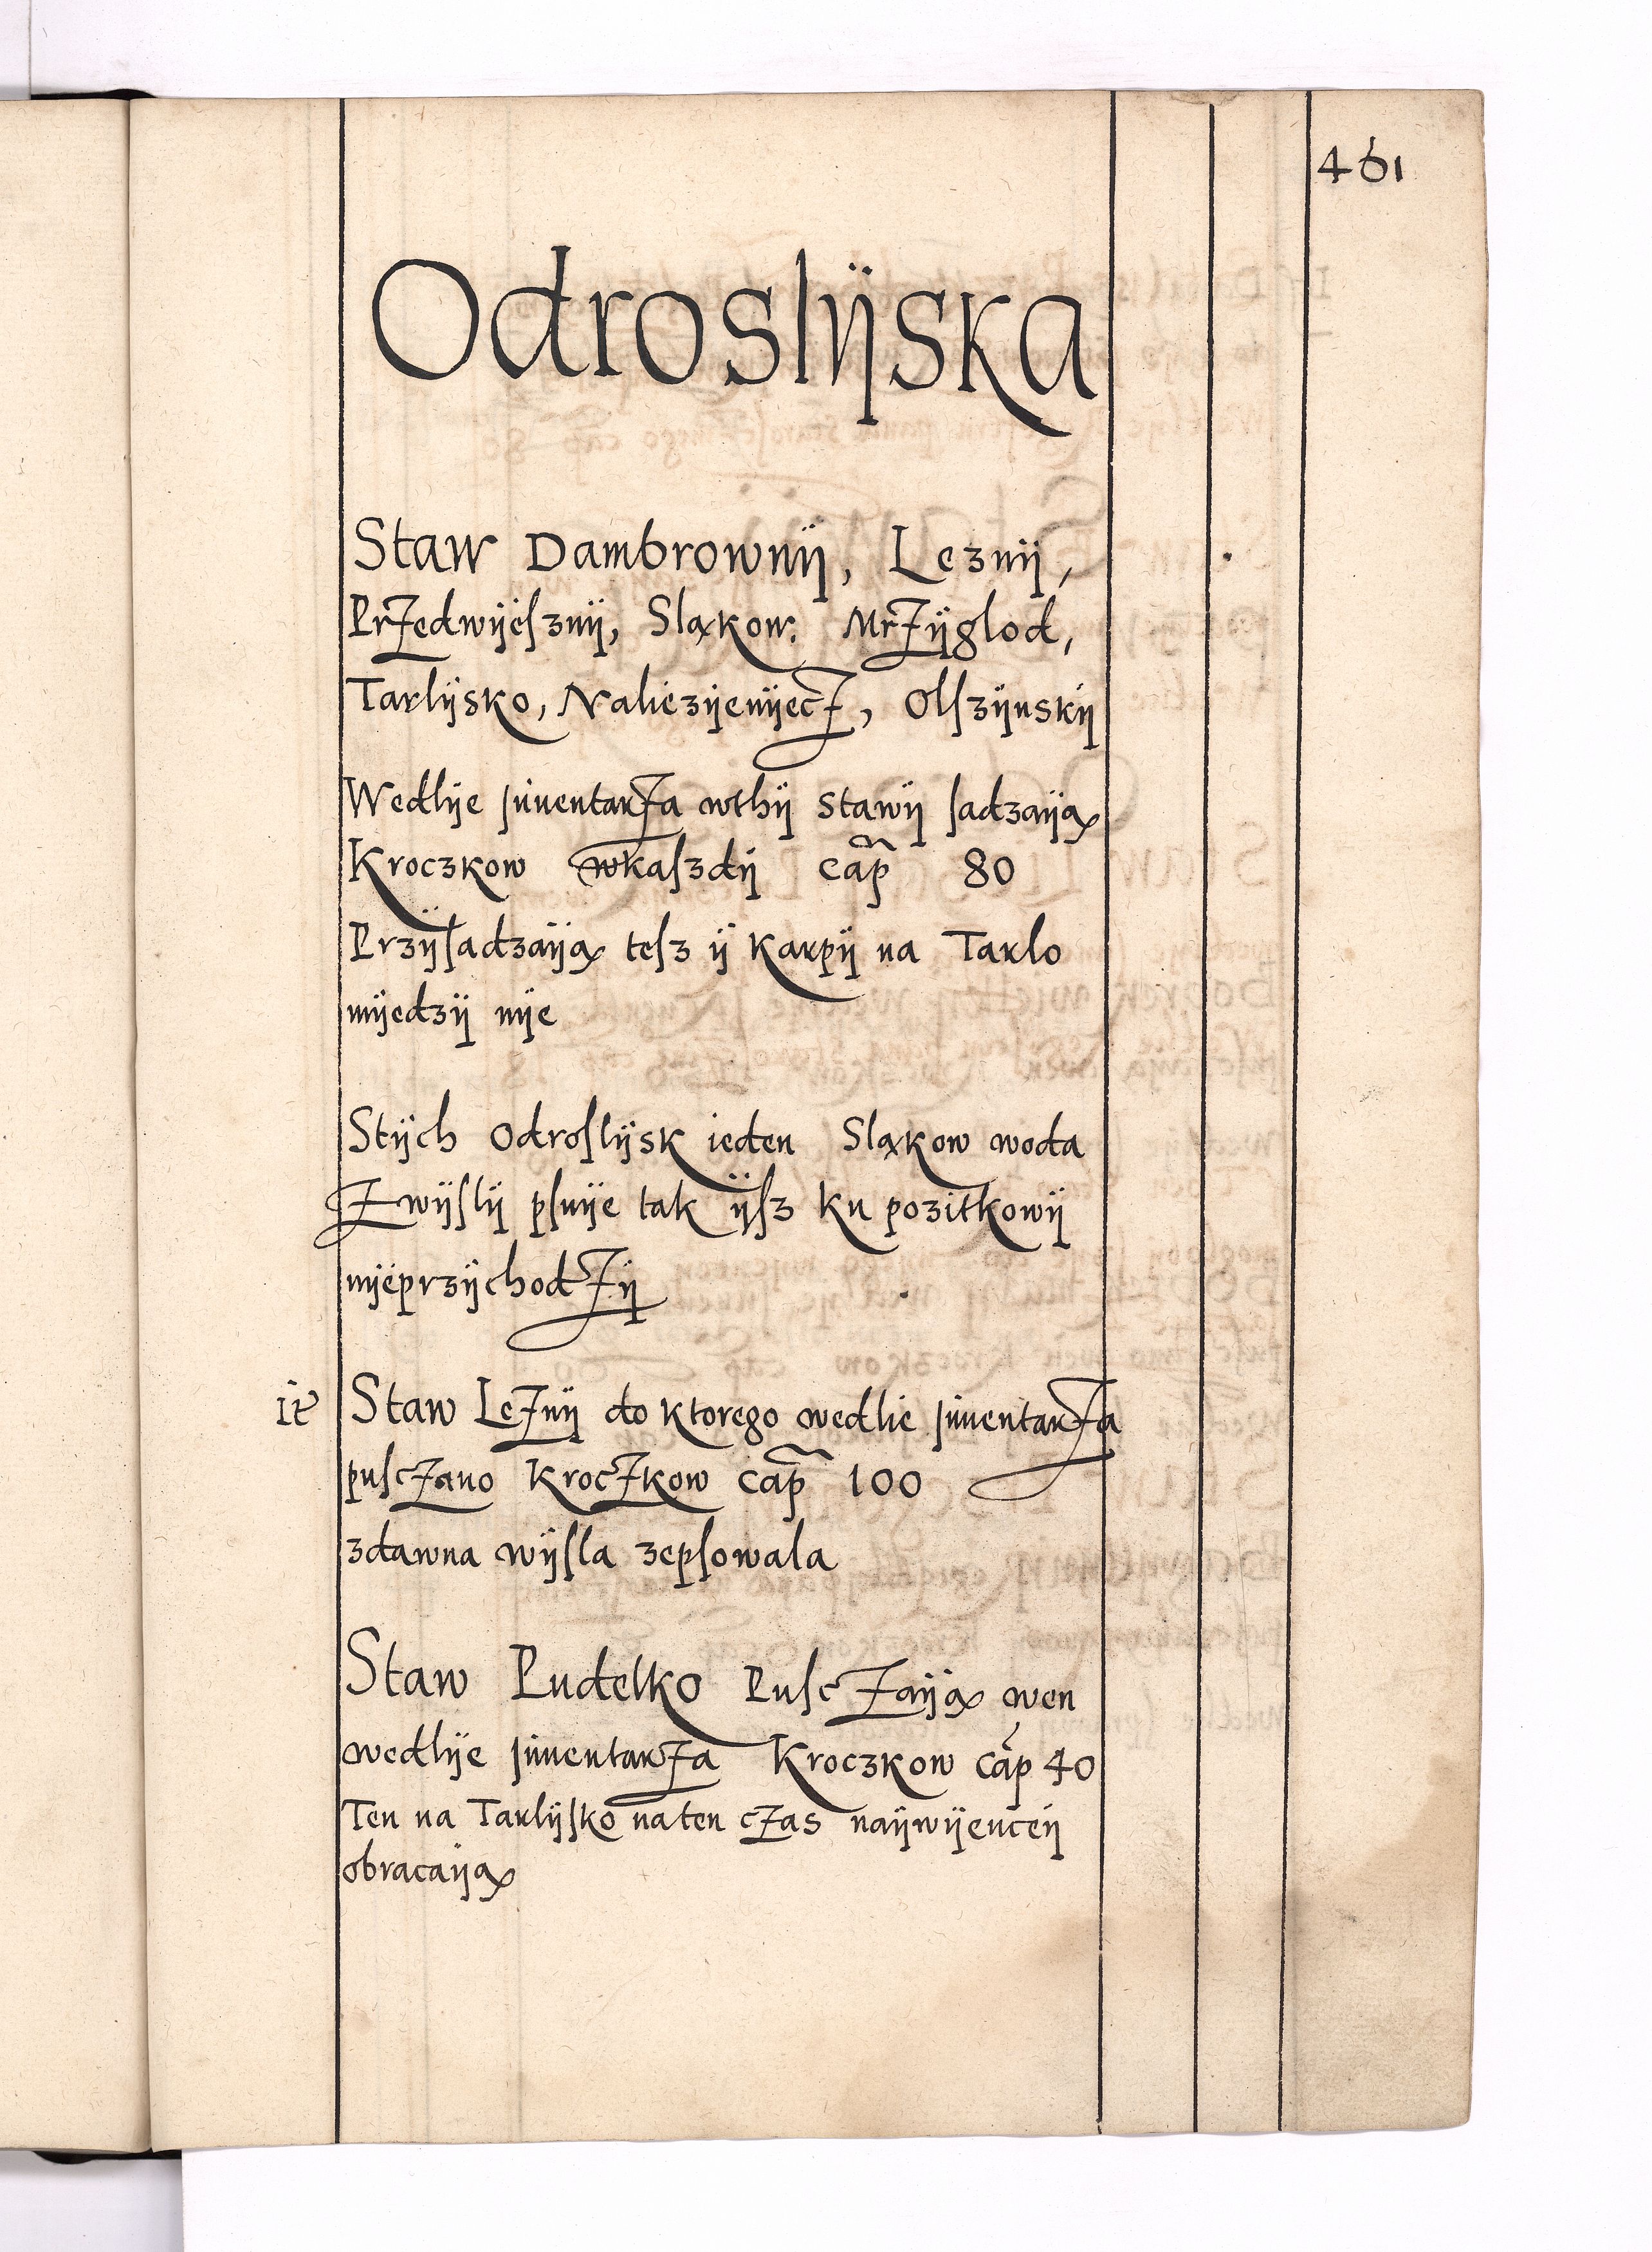 461
Odroslÿska
Staw Dambrownÿ, Leznÿ,
Przedwÿeſznÿ, Sląkow. Mrzÿglod,
Tarlÿsko, Naliezÿenÿecz, Olſzÿnskÿ
Wedlÿe jnuentarza wthÿ stawÿ ſadzaÿą
Kroczkow wkaſzdÿ cap̃ 80
Przÿſadzaÿą teſz ÿ Karpÿ na Tarlo
mÿedzÿ nÿe
Stÿch Odroſlÿsk ieden Sląkow woda
Zwÿſlÿ pſuÿe tak ÿſz ku pozitkowÿ
nÿeprzÿchodzÿ
it Staw Leznÿ do ktorego wedlie jnuentarza
puſczano Kroczkow cap̃ 100
zdawna wÿſla zepſowala
Staw Pudelko Puſczaÿą wen
wedlÿe jnuentarza Kroczkow cap 40
Ten na Tarlÿſko na ten czas naÿwÿencēÿ
obracaÿą